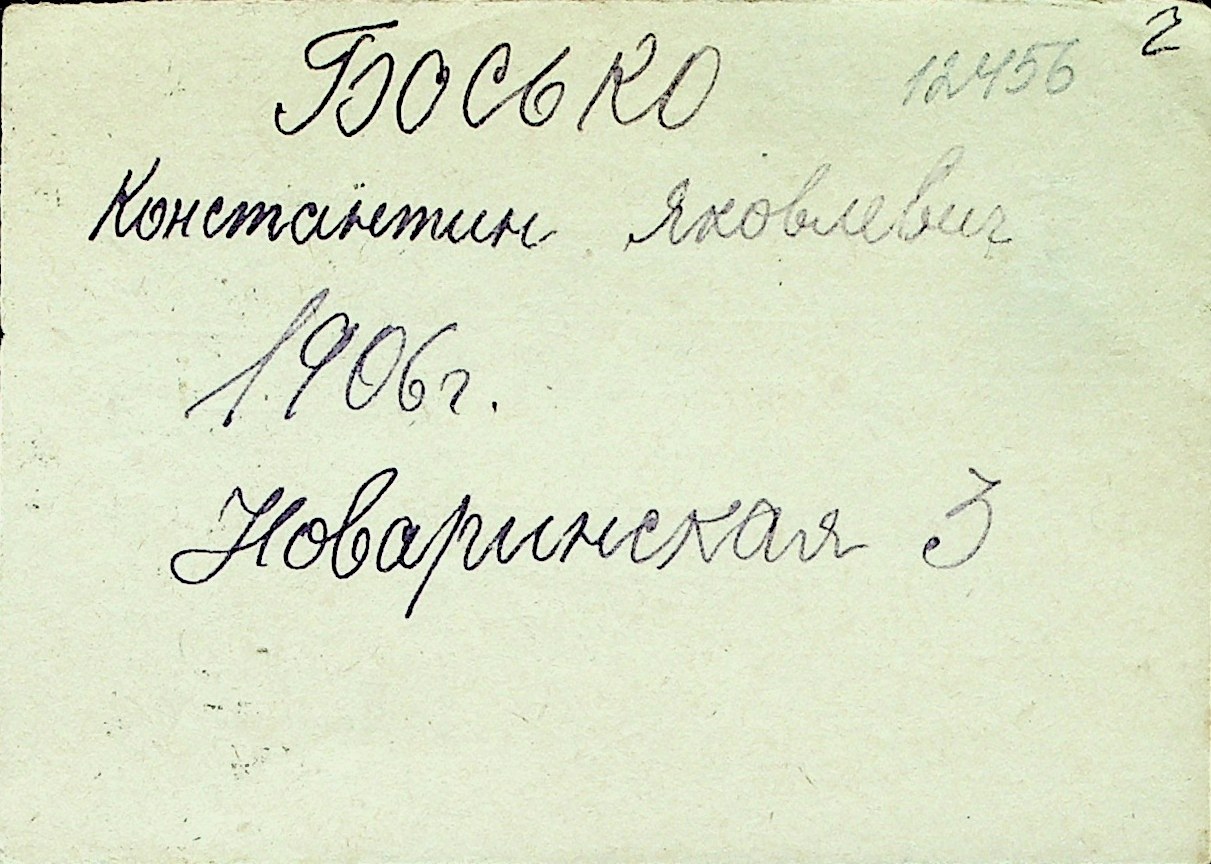 Босько 12456 2
Константин Яковлевич
1906г.
Новаринская 3